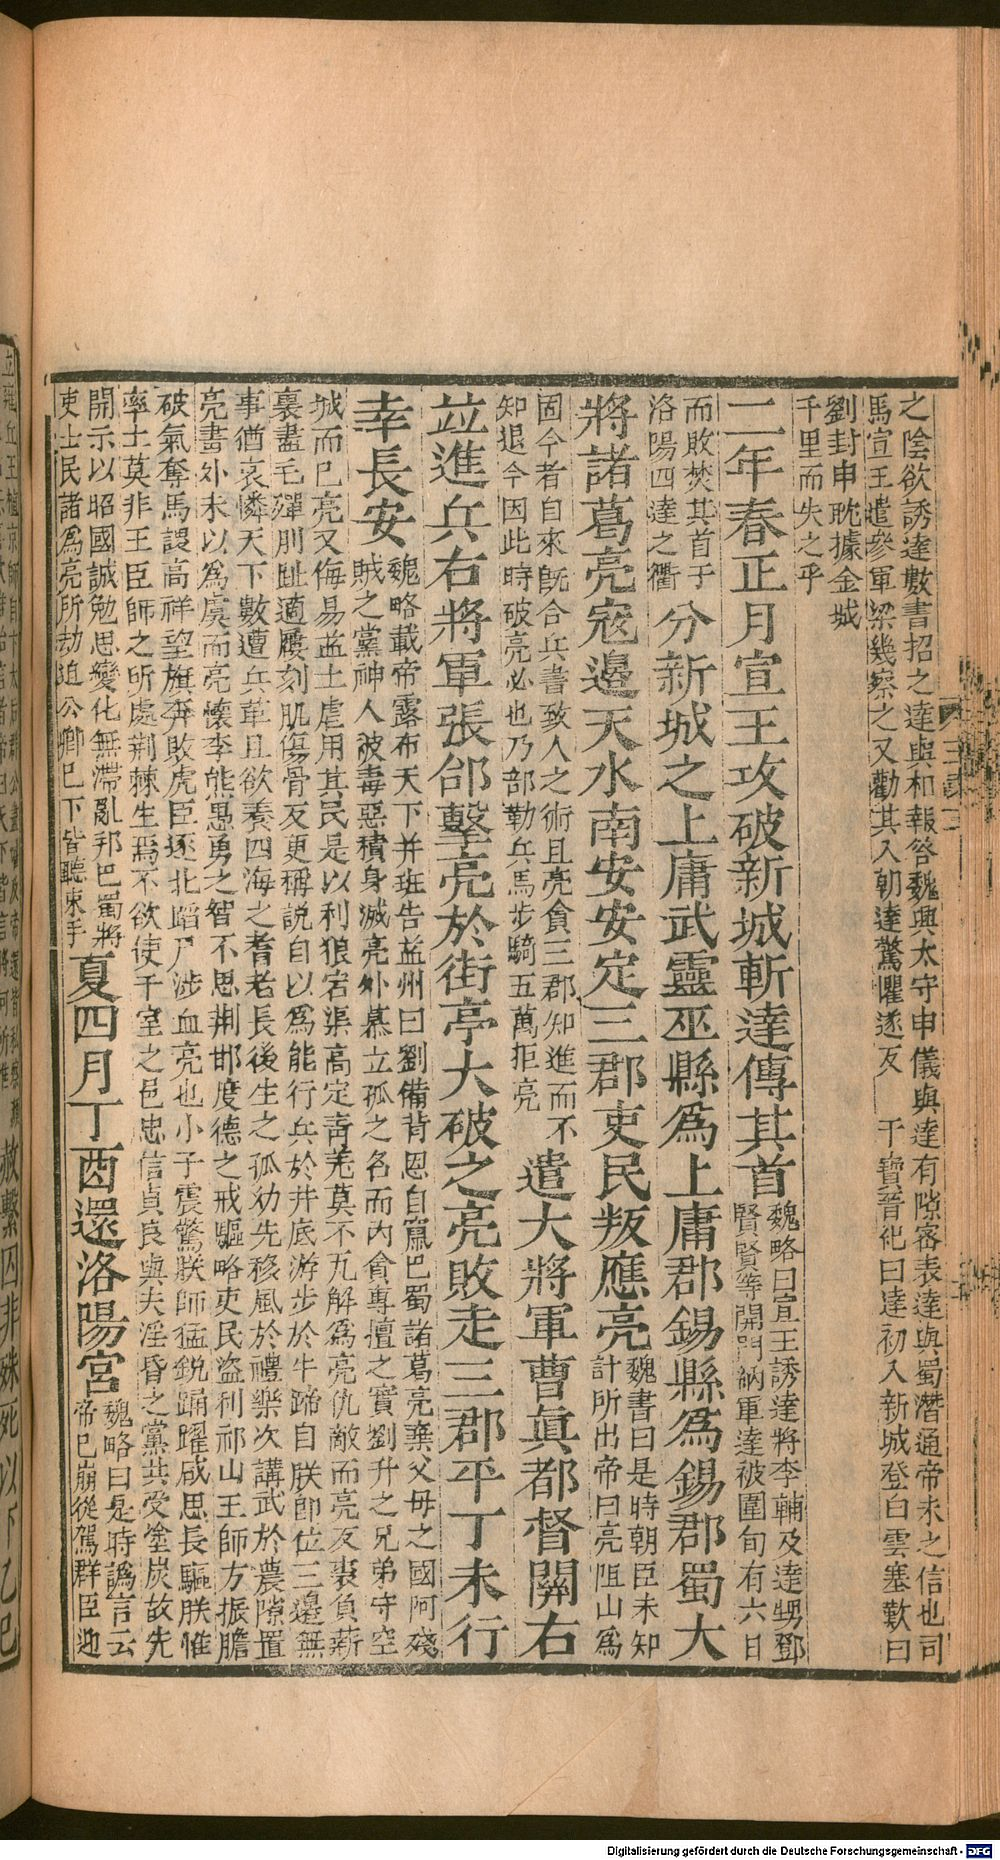 之陰欲誘達數書招之達與和報答魏興太守申儀與達有隙密表達與蜀潛通帝未之信也司
馬宣王遣參軍梁幾察之又勸其入朝達驚懼遂反 干寶晉紀曰達初入新城登白雲塞歎曰
劉封申耽據金城
千里而失之乎
二年春正月宣王攻破新城斬達傳其首
魏略曰宣王誘達將李輔及達甥鄧
賢賢等開門納軍達被圍旬有六日
而敗焚其首于
洛陽四達之衢
分新城之上庸武靈巫縣爲上庸郡錫縣爲錫郡蜀大
將諸葛亮寇邊天水南安安定三郡吏民叛應亮
魏書曰是時朝臣未知
計所出帝曰亮阻山爲
固今者自來旣合兵書致人之術且亮貪三郡知進而不
知退今因此時破亮必也乃部勒兵馬步騎五萬拒亮
遣大將軍曹眞都督關右
竝進兵右將軍張郃擊亮於街亭大破之亮敗走三郡平丁未行
幸長安
魏略載帝露布天下并班告益州曰劉備背恩自竄巴蜀諸葛亮棄父母之國阿殘
賊之黨神人被毒惡積身滅亮外慕立孤之名而內貪專擅之實劉升之兄弟守空
城而已亮又侮易益土虐用其民是以利狼宕渠高定青羌莫不瓦解爲亮仇敵而亮反裘負薪
裏盡毛殫刖趾適屨刻肌傷骨反更稱說自以爲能行兵於井底游步於牛蹄自朕卽位三邊無
事猶哀憐天下數遭兵革且欲養四海之耆老長後生之孤幼先移風於禮樂次講武於農隙置
亮畫外未以爲虞而亮懷李熊愚勇之智不思荆邯度德之戒驅略吏民盜利祁山王師方振膽
破氣奪馬謖高祥望旗奔敗虎臣逐北蹈尸涉血亮也小子震驚朕師猛銳踊躍咸思長驅朕惟
率土莫非王臣師之所處荆棘生焉不欲使千室之邑忠信貞良與夫淫昏之黨共受塗炭故先
開示以昭國誠勉思變化無滯亂邦巴蜀將
吏士民諸爲亮所劫迫公卿已下皆聽束手
夏四月丁酉還洛陽宮
魏略曰是時譌言云
帝已崩從駕群臣迎
立雍丘王植京師自太后群公盡懼及帝還皆私察顏
赦繫囚非殊死以下乙巳
Digitalisierung gefördert durch die Deutsche Forschungsgemeinschaft - DFG